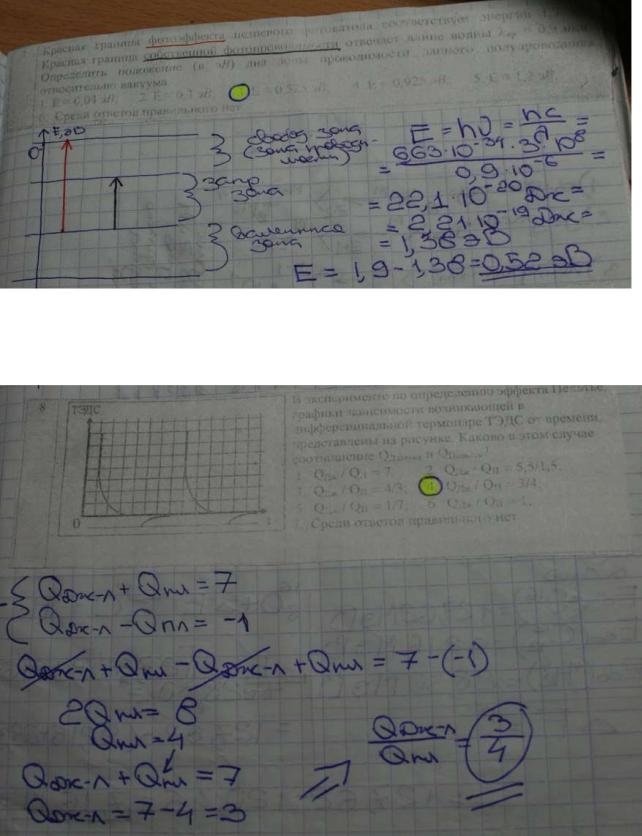 Красная граница фотоэффекта цезиевого фотокатода соответствует энергии
Красная граница собственной фотопроводимости отвечает длине волны λкр = 0,9 мкм
Определить положение (в эВ) дна зоны проводимости данного полупроводника
относительно вакуума.
1. E = 0,04 эВ; 2. E = 0,3 эВ; 3. E = 0,525 эВ; 4. E = 0,925 эВ; 5. E = 1,2 эВ;
6. Среди ответов правильного нет
E, эВ
0
свобод. зона
(зона проводимости)
запр
зона
валентная
зона
E = hν = hc =
= 6,63·10⁻³⁴·3·10⁸ =
0,9·10⁻⁶
= 22,1·10⁻²⁰ Дж =
= 2,21·10⁻¹⁹ Дж =
= 1,38 эВ
E = 1,9 - 1,38 = 0,52 эВ
8
ТЭДС
0
t
В эксперименте по определению эффекта Пельтье,
графики зависимости возникающей в
дифференциальной термопаре ТЭДС от времени,
представлены на рисунке. Каково в этом случае
соотношение
4. QДж / QП = 3/4;
7. Среди ответов правильного нет
QДж-л + Qпл = 7
QДж-л - Qпл = -1
QДж-л + Qпл - QДж-л + Qпл = 7 - (-1)
2Qпл = 8
Qпл = 4
QДж-л + Qпл = 7
QДж-л = 7 - 4 = 3
QДж-л / Qпл = 3/4